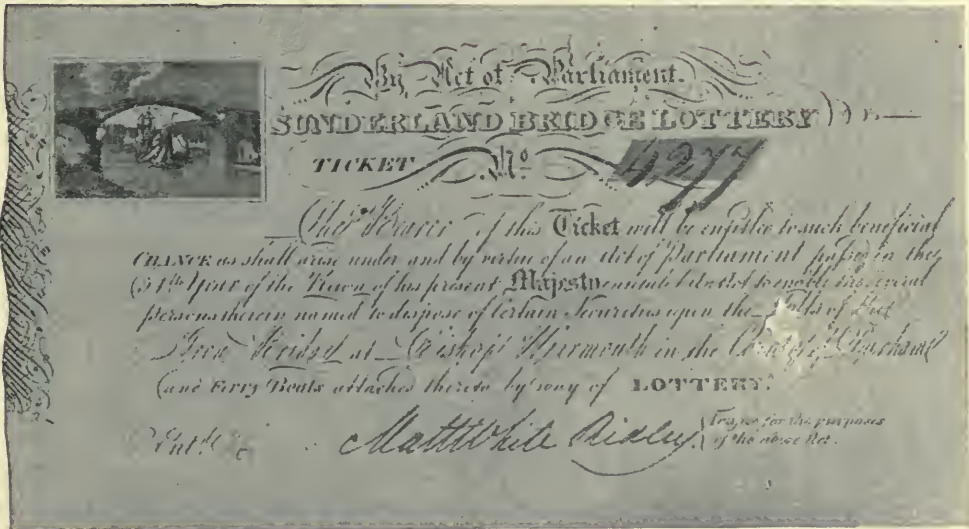 By Act of Parliament.
SUNDERLAND BRIDGE LOTTERY
TICKET No 4,277
The Bearer of this Ticket will be entitled to such beneficial
CHANCE as shall arise under and by virtue of an Act of Parliament passed in the
Year of the Reign of his present Majesty entitled An Act to enable the several
persons therein named to dispose of certain Securities upon the Tolls of the
Iron Bridge at Bishop Wearmouth in the County of Durham
(and Ferry Boats attached thereto by way of LOTTERY.
Matt White Ridley Trustee for the purposes
of the above Act.